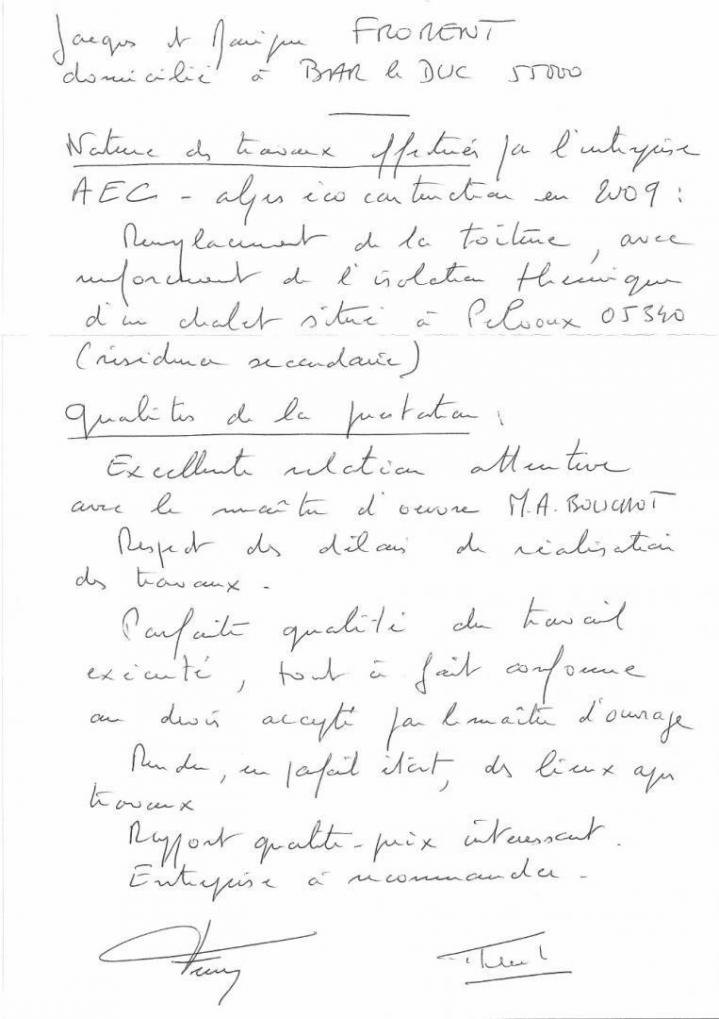 Jacques et Monique FROMENT
domicilié à BAR le DUC 55000
Nature des travaux effectués par l'entreprise
AEC - alpes éco construction en 2009 :
Remplacement de la toiture, avec
renforcement de l'isolation thermique
d'un chalet situé à Pelvoux 05340
(résidence secondaire)
Qualités de la prestation :
Excellente relation attentive
avec le maître d'oeuvre M.A. BOUCHOT
Respect des délais de réalisation
des travaux -
Parfaite qualité du travail
exécuté, tout à fait conforme
au devis accepté par le maître d'ouvrage
Rendu, en parfait état, des lieux après
travaux
Rapport qualité-prix intéressant.
Entreprise à recommander -